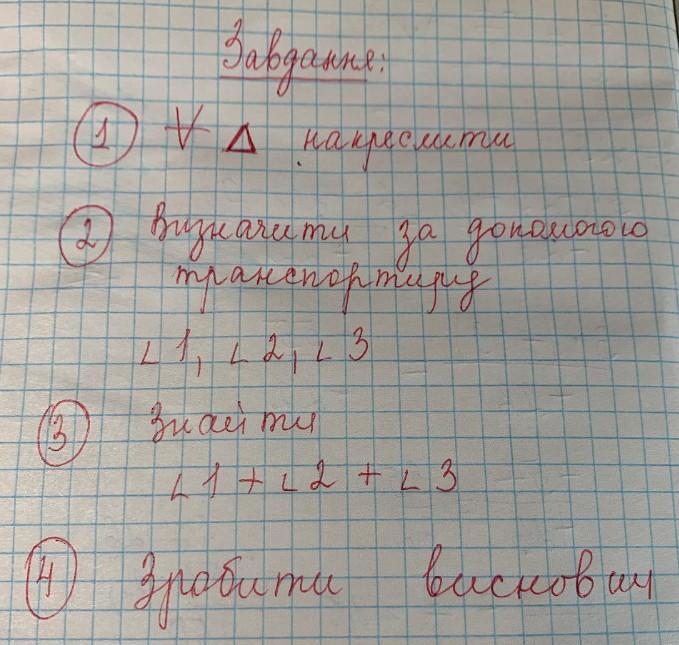 Завдання:
1 ∀ Δ накреслити
2 Визначити за допомогою
транспортиру
∠1, ∠2, ∠3
3 Знайти
∠1 + ∠2 + ∠3
4 Зробити висновки